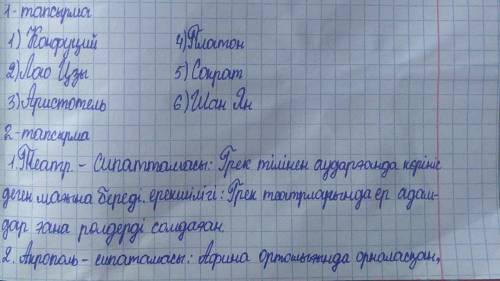 1-тапсырма
1) Конфуций 4) Платон
2) Лао Цзы 5) Сократ
3) Аристотель 6) Шан Ян
2-тапсырма
1. Театр. - Сипаттамасы: Грек тілінен аударғанда көрініс
деген мағына береді. ерекшілігі: Грек театрларында ер адам-
дар ғана рөлдерді сомдаған.
2. Акрополь - сипатамасы: Афина орталығында орналасқан,